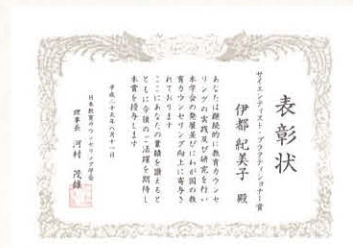 表彰状
サイエンティスト・プラクティショナー賞
伊都 紀美子 殿
あなたは継続的に教育カウンセ
リングの実践及び研究を行い
本学会の発展並びにわが国の教
育カウンセリング向上に寄与さ
れております
ここにあなたの業績を讃えると
ともに今後のご活躍を期待し
本賞を授与します
平成二十五年八月十一日
日本教育カウンセリング学会
理事長 河村 茂雄